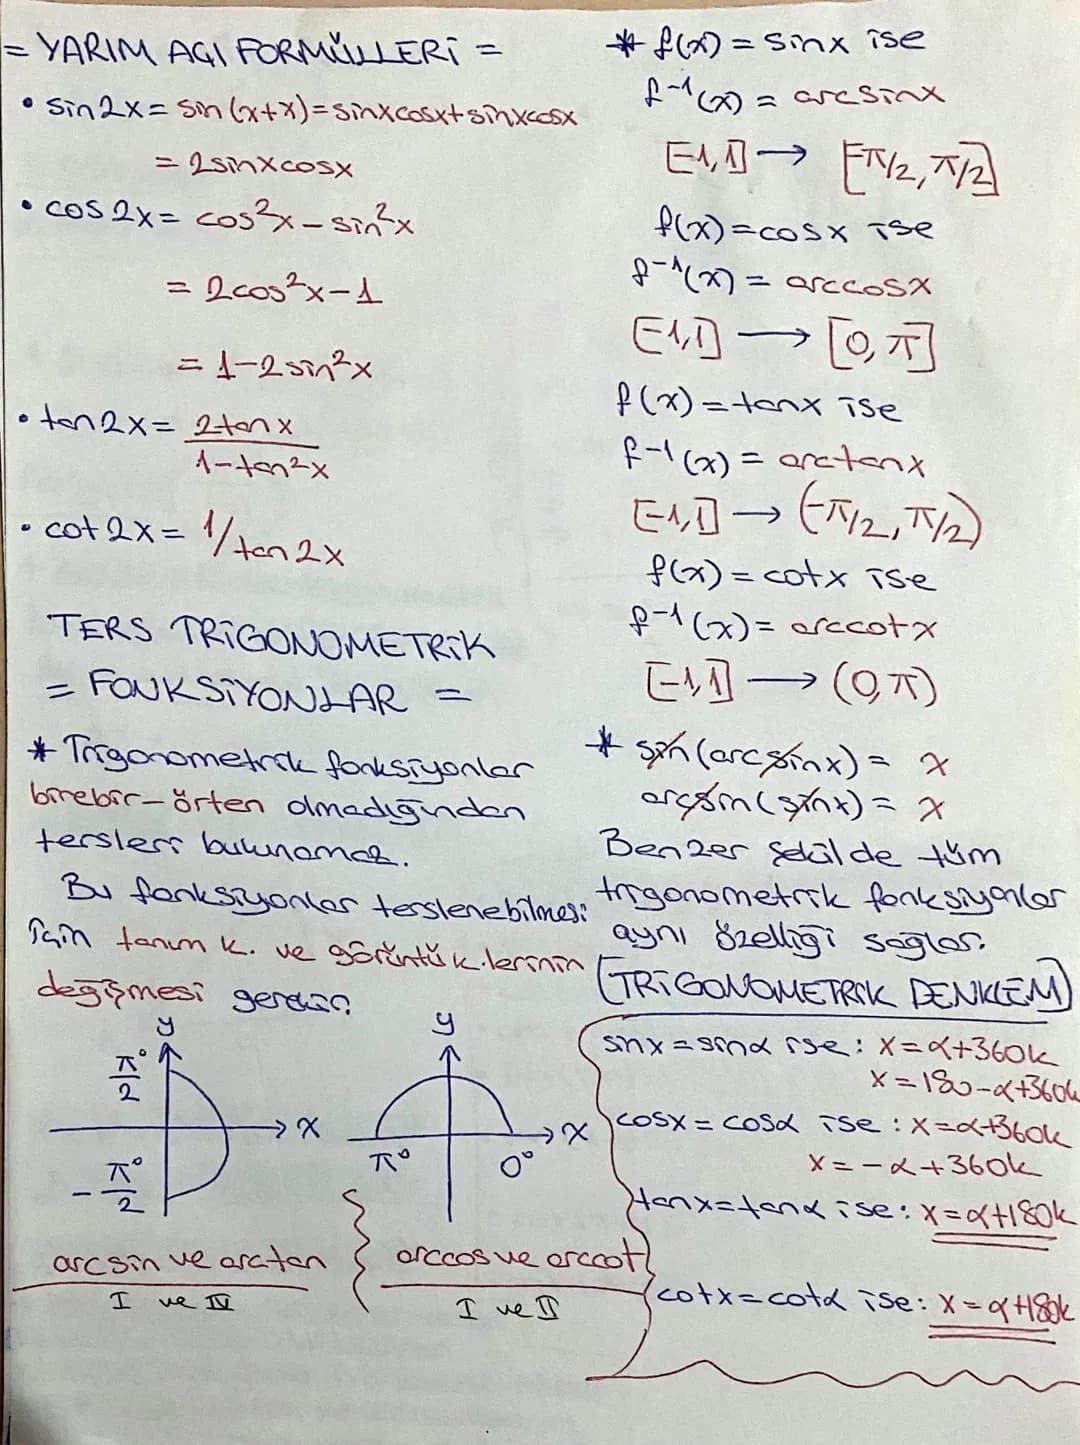 = YARIM AÇI FORMÜLLERİ =
• sin2x = sin(x+x) = sinxcosx + sinxcosx
= 2sinxcosx
• cos2x = cos²x - sin²x
= 2cos²x - 1
= 1 - 2sin²x
• tan2x = 2tanx
1 - tan²x
• cot2x = 1/tan2x
TERS TRİGONOMETRİK
= FONKSİYONLAR =
* Trigonometrik fonksiyonlar
birebir-örten olmadığından
tersleri bulunamaz.
Bu fonksiyonlar terslenebilmesi
için tanım k. ve görüntü k.lerinin
değişmesi gerekir.
y
π°
2
x
-π°
2
arcsin ve arctan
I ve IV
y
x
π°
0°
arccos ve arccot
I ve II
* f(x) = sinx ise
f⁻¹(x) = arcsinx
[-1,1] → [-π/2, π/2]
f(x) = cosx ise
f⁻¹(x) = arccosx
[-1,1] → [0, π]
f(x) = tanx ise
f⁻¹(x) = arctanx
[-1,1] → (-π/2, π/2)
f(x) = cotx ise
f⁻¹(x) = arccotx
[-1,1] → (0, π)
* sin(arcsinx) = x
arcsin(sinx) = x
Benzer şekilde tüm
trigonometrik fonksiyonlar
aynı özelliği sağlar.
[TRİGONOMETRİK DENKLEM]
sinx = sinα ise: x = α + 360k
x = 180 - α + 360k
cosx = cosα ise: x = α + 360k
x = -α + 360k
tanx = tanα ise: x = α + 180k
cotx = cotα ise: x = α + 180k